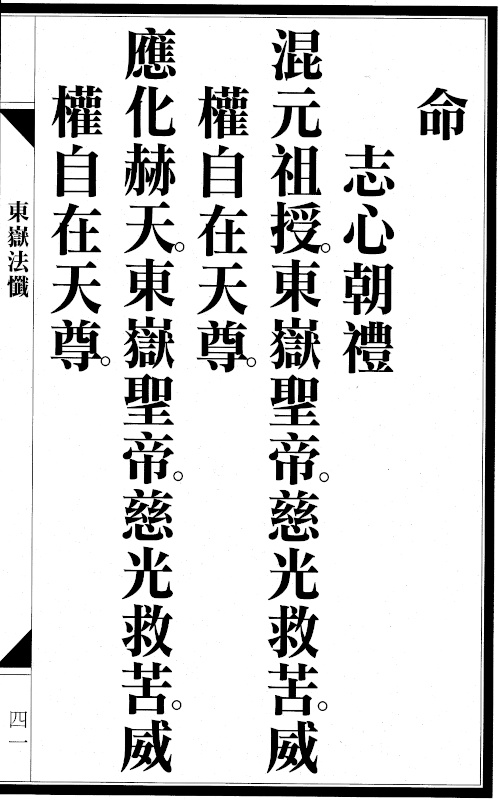 命
志心朝禮
混元祖授。東嶽聖帝。慈光救苦。威
權自在天尊。
應化赫天。東嶽聖帝。慈光救苦。威
權自在天尊。
東嶽法懺
四一